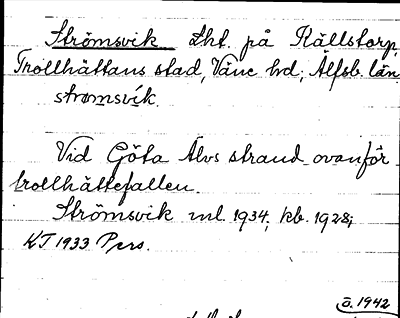 Strömsvik Lht. på Källstorp,
Trollhättans stad, Väne hd; Älfsb. län
strömsvik.
Vid Göta Älvs strand ovanför
trollhättefallen.
Strömsvik ml. 1934; kb. 1928;
KT 1933 Pers.
ö. 1942